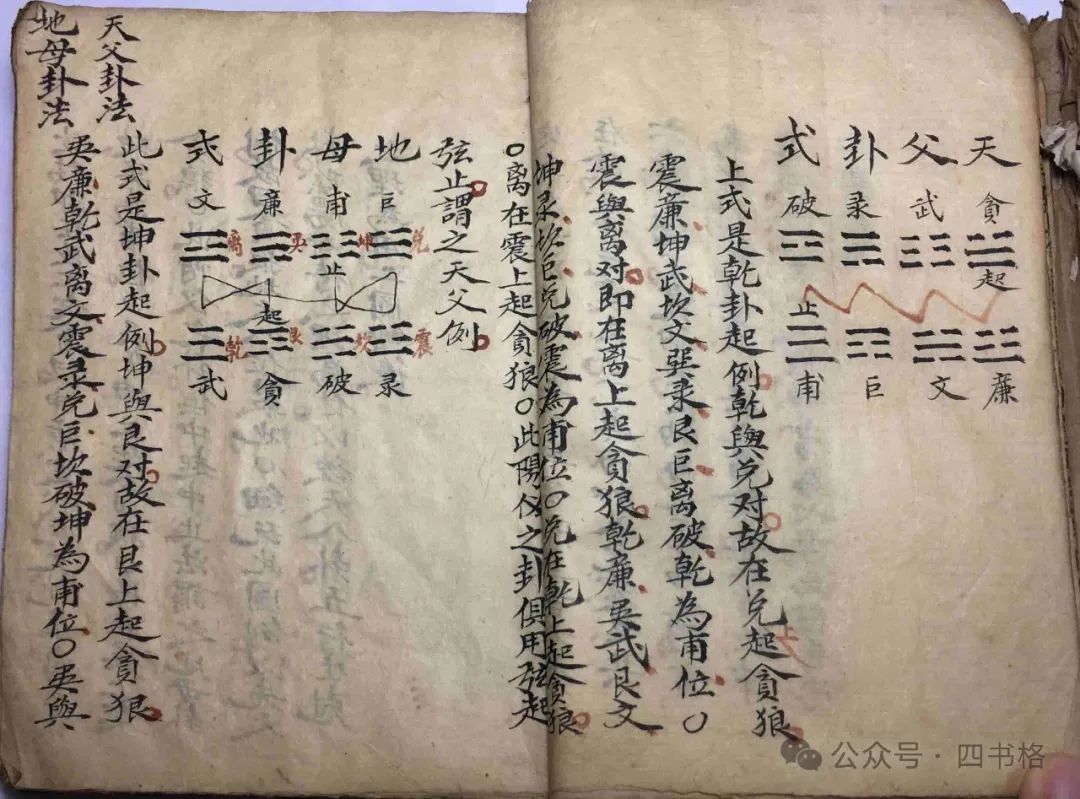 天父卦式
貪武录破
起
止
廉文巨甫
上式是乾卦起例乾與兌对故在兌起貪狼
震廉坤武坎文巽录艮巨离破乾為甫位〇
震與离对即在离上起貪狼乾廉巽武艮文
坤录坎巨兌破震為甫位〇兌在乾上起貪狼
〇离在震上起貪狼〇此陽仪之卦俱用弦起
弦止謂之天父例
地母卦式
巨甫廉文
兌坤巽离
止
起
震坎艮乾
录破貪武
此式是坤卦起例坤與艮对故在艮上起貪狼
巽廉乾武离文震录兌巨坎破坤為甫位〇巽與
天父卦法
地母卦法
公众号·四书格